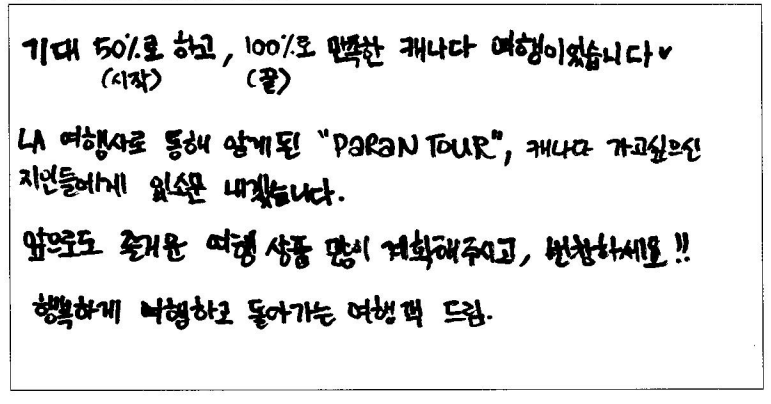 기대 50%로 하고, 100%로 만족한 캐나다 여행이었습니다♥
(시작) (끝)
LA 여행사로 통해 알게된 "PaRaN TOUR", 캐나다 가고싶으신
지인들에게 입소문 내겠습니다.
앞으로도 즐거운 여행 상품 많이 계획해주시고, 번창하세요!!
행복하게 여행하고 돌아가는 여행객 드림.